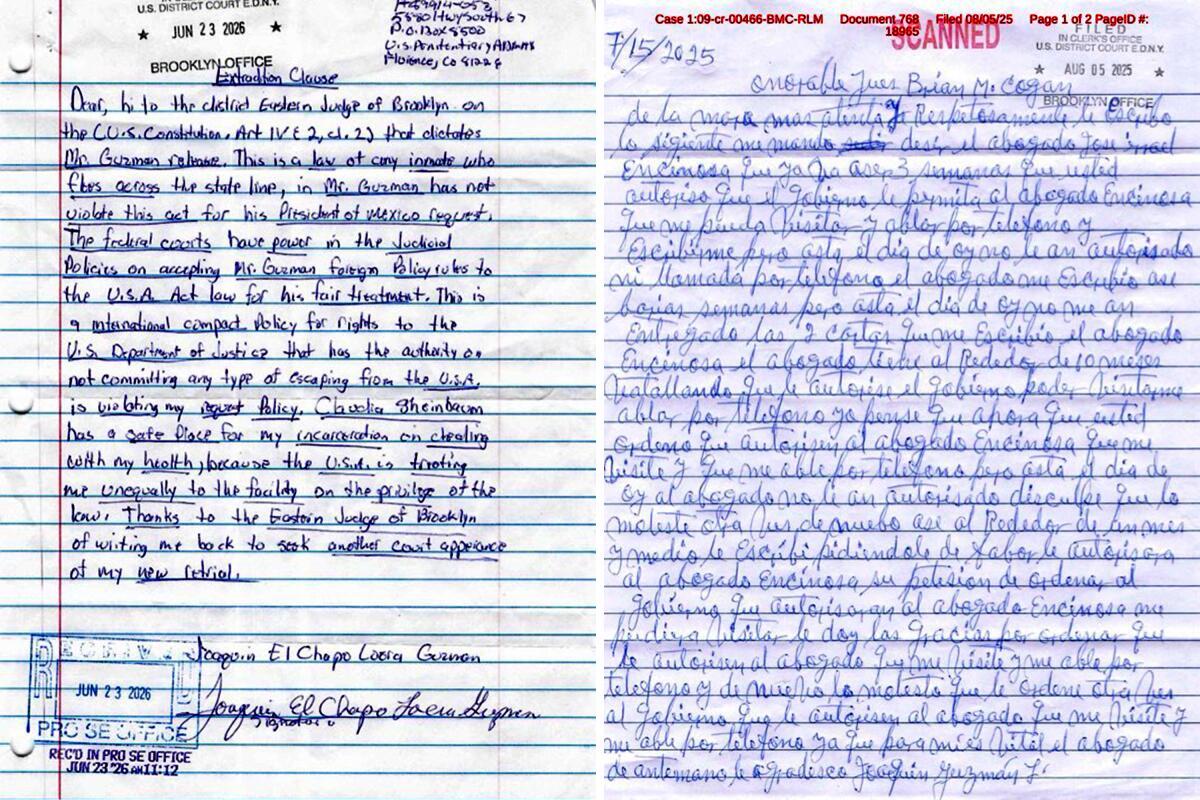 U.S. DISTRICT COURT E.D.N.Y.
★ JUN 23 2026 ★
BROOKLYN OFFICE
P.O. Box 8500
U.S. Penitentiary
Florence, Co
Extradition Clause
Dear, hi to the district Eastern Judge of Brooklyn on
the (U.S. Constitution, Art IV 2, cl. 2) that dictates
Mr. Guzman release. This is a law of any inmate who
flees across the state line, in Mr. Guzman has not
violate this act for his President of Mexico request.
The federal courts have power in the Judicial
Policies on accepting Mr. Guzman foreign Policy rules to
the U.S.A. Act law for his fair treatment. This is
a international compact Policy for rights to the
U.S. Department of Justice that has the authority on
not committing any type of escaping from the U.S.A.
is violating my request Policy. Claudia Sheinbaum
has a safe Place for my incarceration on dealing
with my health, because the U.S.A. is treating
me unequally to the facility on the privilige of the
law. Thanks to the Eastern Judge of Brooklyn
of writing me back to seek another court apperance
of my new retrial.
Joaquin El Chapo Loera Guzman
Joaquin El Chapo Loera Guzman
RECEIVED
JUN 23 2026
PRO SE OFFICE
REC'D IN PRO SE OFFICE
JUN 23 '26 AM 11:12
Case 1:09-cr-00466-BMC-RLM Document 768 Filed 08/05/25 Page 1 of 2 PageID #:
18965
SCANNED
FILED
IN CLERK'S OFFICE
U.S. DISTRICT COURT E.D.N.Y.
★ AUG 05 2025 ★
BROOKLYN OFFICE
7/15/2025
onorable Jues Brian M. Cogan
de la mas atenta y Respetosamente le Escribo
lo sigiente me mando desir el abogado Jose
Encinosa que ya va ase 3 semanas que usted
autoriso que el gobierno le permita al abogado Encinosa
que me pueda Visitar y ablar por telefono y
Escribirme pero asta el dia de oy no le an autorisado
ni llamada por telefono el abogado me Escribio ase
barias semanas pero asta el dia de oy no me an
Entregado las 2 cartas que me Escribio el abogado
Encinosa el abogado tiene al Rededor de 10 meses
batallando que le autorise el gobierno poder Visitarme
ablar por telefono yo pense que ahora que usted
ordeno que autorisen al abogado Encinosa que me
Visite y que me able por telefono pero asta el dia de
oy al abogado no le an autorisado disculpe que lo
moleste otra Ves de nuebo ase al Rededor de un mes
y medio le Escribi pidiendole de fabor le autorisara
al abogado Encinosa su petesion de ordenar al
gobierno que autorisaran al abogado Encinosa me
pudiera Visitar le doy las gracias por ordenar que
le autorisen al abogado que me Visite y me able por
telefono y de nuebo lo molesto que le ordene otra Ves
al gobierno que le autorisen al abogado que me Visite y
me able por telefono ya que para mi es Vital el abogado
de antemano le agradesco Joaquin Guzmán L.